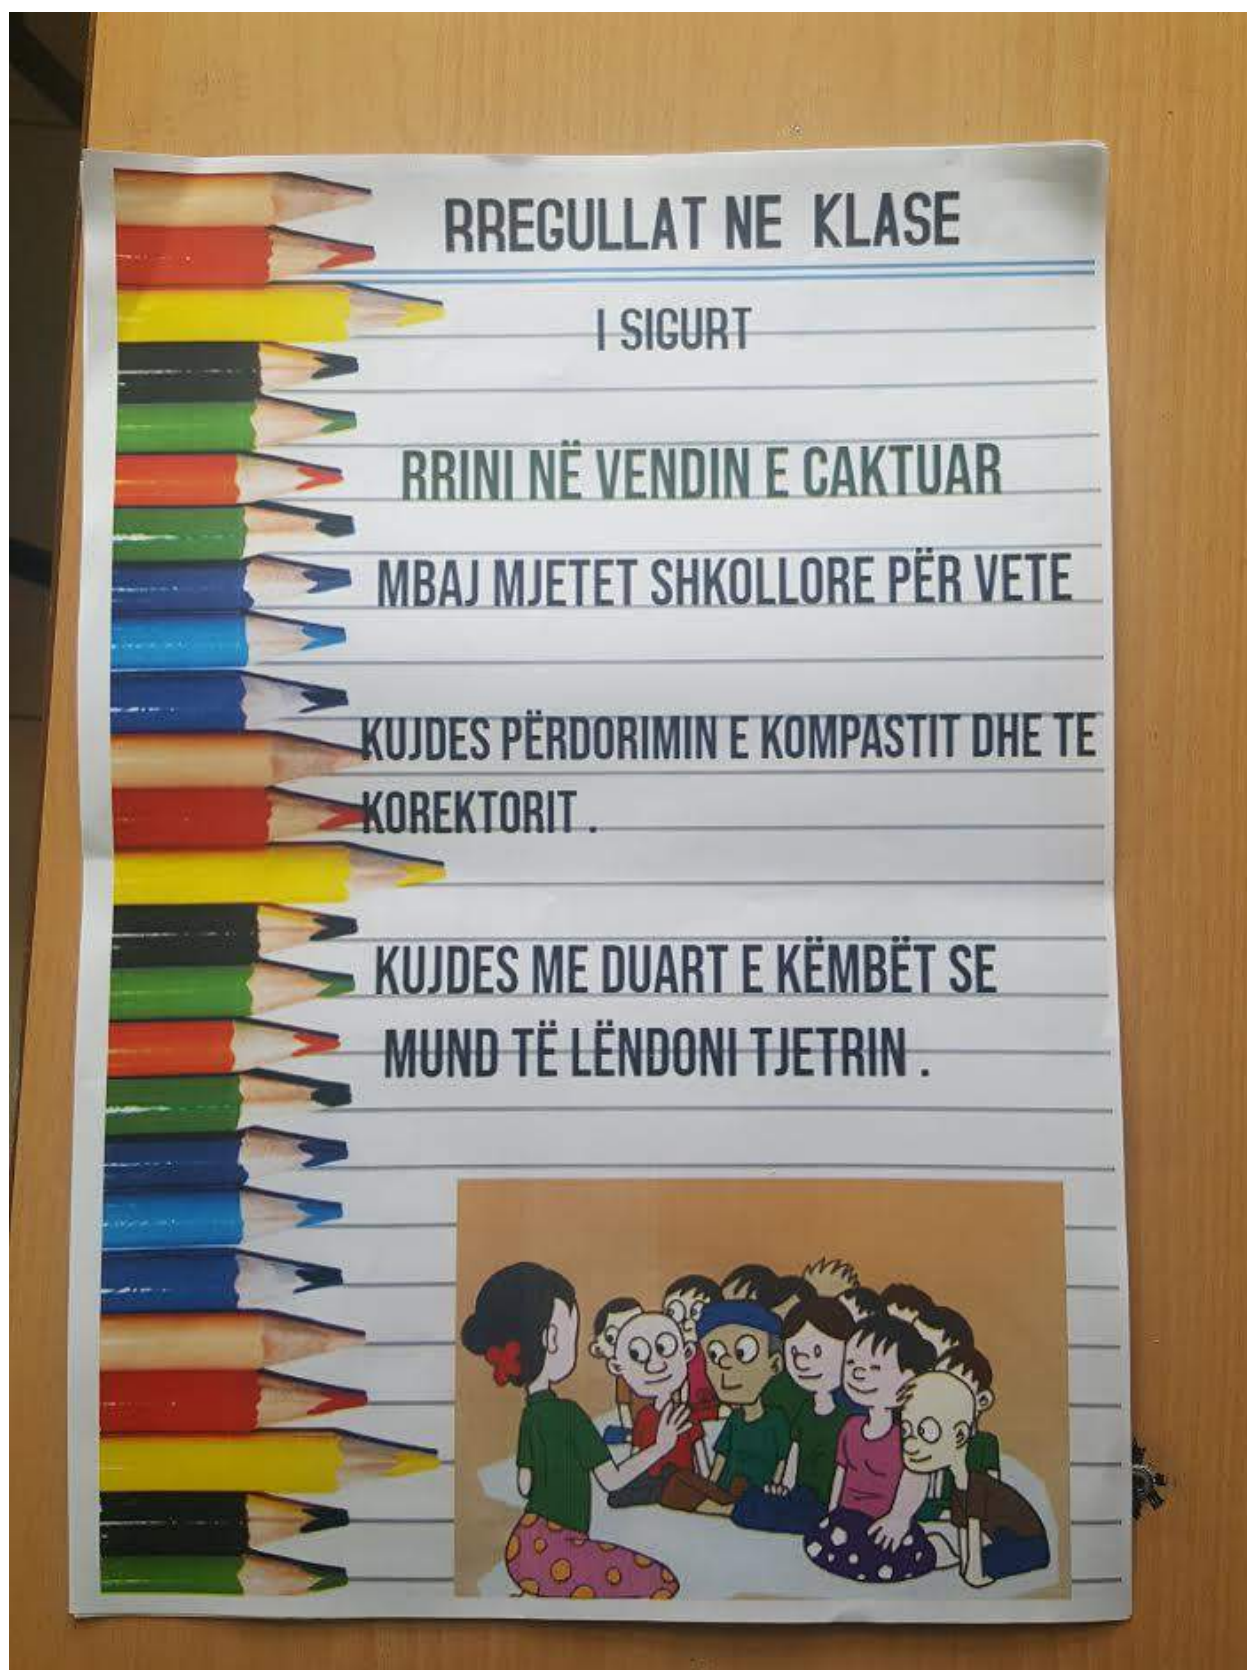 RREGULLAT NE KLASE
I SIGURT
RRINI NË VENDIN E CAKTUAR
MBAJ MJETET SHKOLLORE PËR VETE
KUJDES PËRDORIMIN E KOMPASTIT DHE TE
KOREKTORIT .
KUJDES ME DUART E KËMBËT SE
MUND TË LËNDONI TJETRIN .